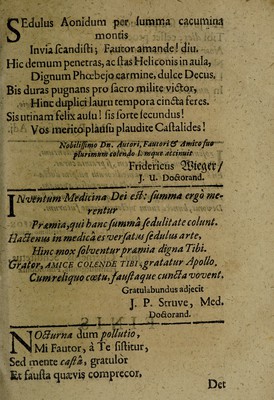 SEdulus Aonidum per summa cacumina
montis
Invia scandisti; Fautor amande! diu.
Hic demum penetras, ac stas Heliconis in aula,
Dignum Phœbejo carmine, dulce Decus,
Bis duras pugnans pro sacro milite victor,
Hinc duplici lauru tempora cincta feres.
Sis utinam felix aulu! sis sorte secundus!
Vos merito plausu plaudite Castalides!
Nobilissimo Dn. Autori, Fautori & Amico suo
plurimum colendo attinuit
Fridericus Wieger/
J. U. Doctorand.
INventum Medicina Dei est: summa ergò me-
rentur
Præmia, qui hanc summâ sedulitate colunt.
Hactenus in medicâ es versatus sedulus arte,
Hinc mox solventur præmia digna Tibi.
Grator, AMICE COLENDE TIBI, gratatur Apollo,
Cum reliquo cœtu, faustaque cuncta vovent.
Gratulabundus adjecit
J. P. Struve, Med.
Doctorand.
NOcturna dum pollutio,
Mi Fautor, à Te sistitur,
Sed mente castâ, gratulor
Et fausta quævis comprecor,
Det